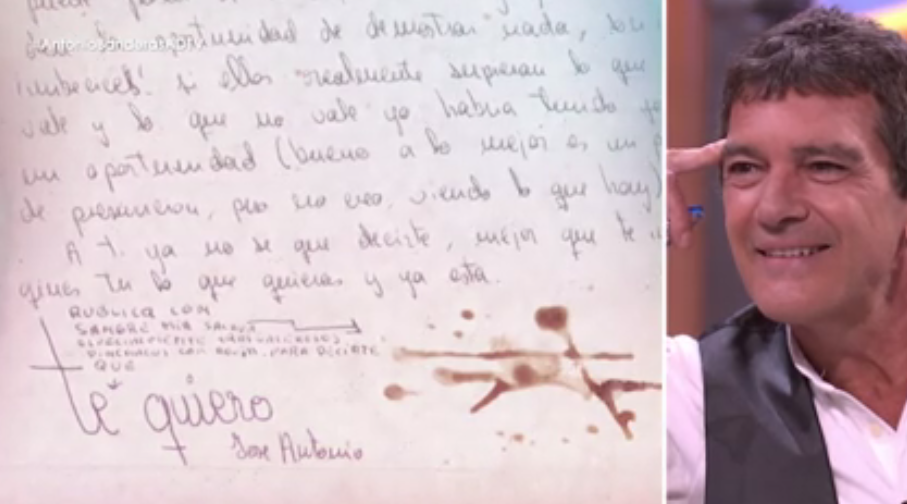 puede
#AntonioBanderasADTV
oportunidad de demostrar nada, son
imbeciles. si ellos realmente supieran lo que
vale y lo que no vale yo habria tenido ya
un oportunidad (bueno a lo mejor es un
de presuncion, pero no creo, viendo lo que hay)
A ti ya no se que decirte, mejor que te
gines tu lo que quieras y ya esta.
RUBRICA CON
SANGRE MIA
PARA DECIRTE
QUE
te quiero
Jose Antonio